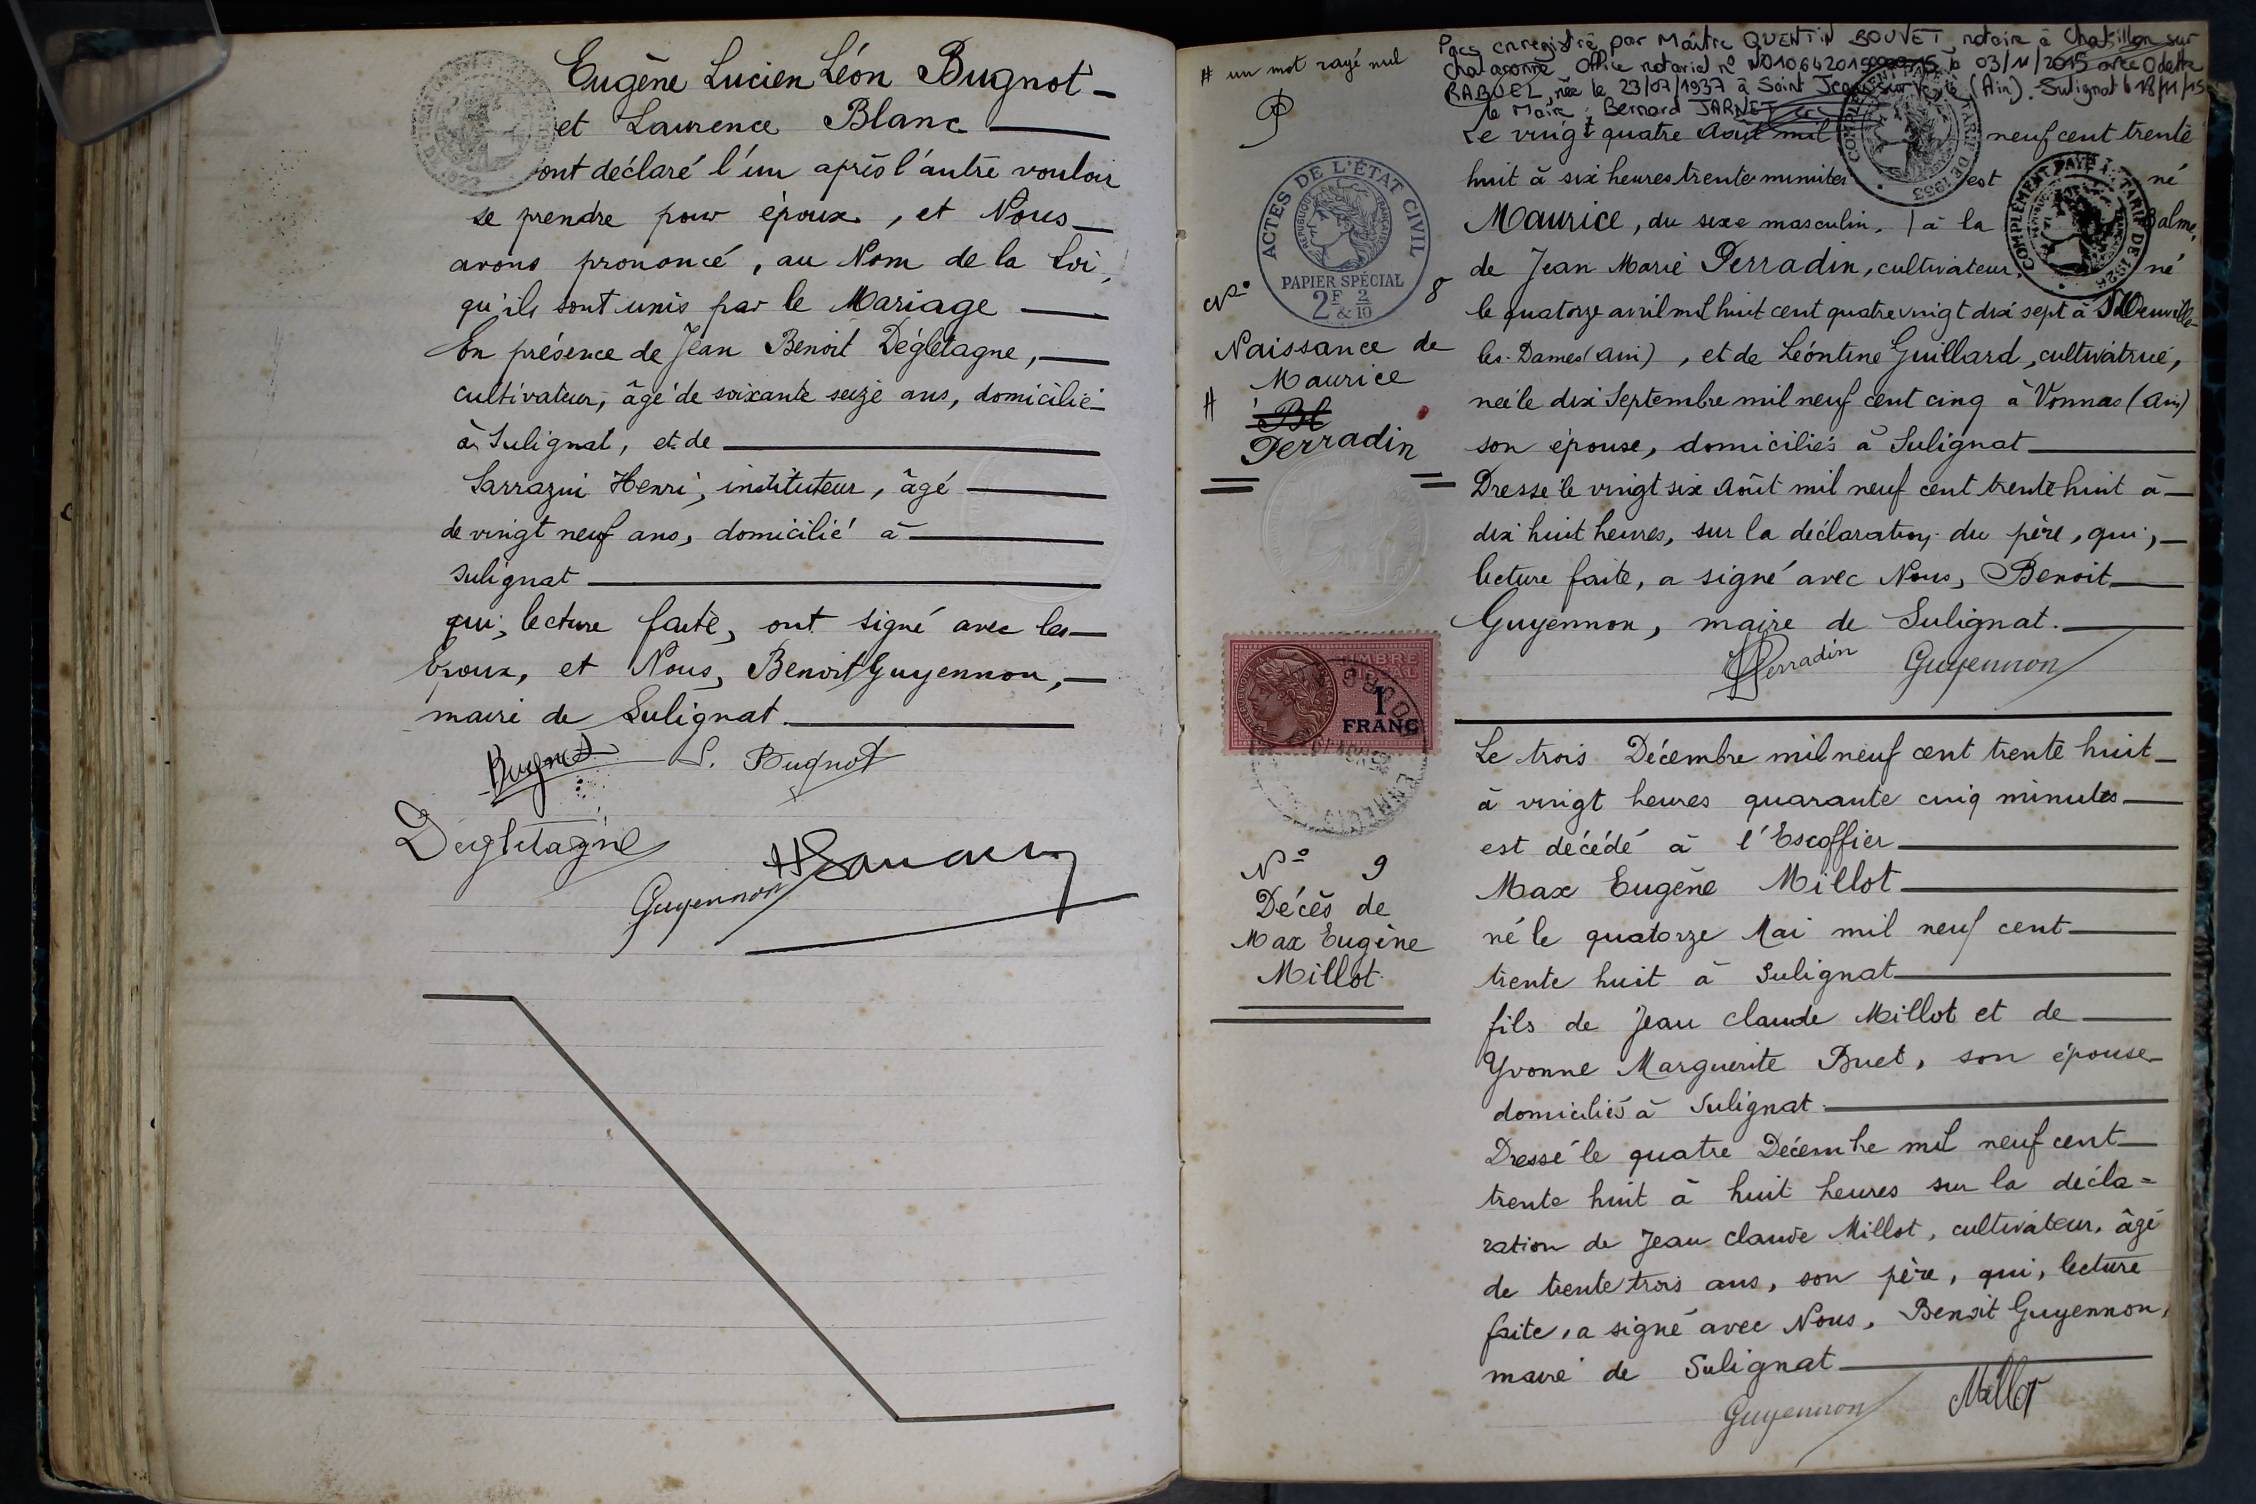 Eugène Lucien Léon Bugnot
et Laurence Blanc
ont déclaré l'un après l'autre vouloir
se prendre pour époux, et Nous
avons prononcé, au Nom de la Loi,
qu'ils sont unis par le Mariage
En présence de Jean Benoit Dégletagne,
cultivateur, âgé de soixante seize ans, domicilié
à Sulignat, et de
Sarrazin Henri, instituteur, âgé
de vingt neuf ans, domicilié à
Sulignat
qui, lecture faite, ont signé avec les
Époux, et Nous, Benoit Guyennon,
maire de Sulignat.
Bugnot L. Bugnot
Degletagne
Guyennon
# un mot rayé nul
Pacs enregistré par Maître QUENTIN BOUVET, notaire à Chatillon sur
Chalaronne Office notarial n° le 03/11/2015 avec Odette
RABUEL, née le 23/07/1937 à Saint Jean sur Veyle (Ain). Sulignat le 18/11/15
le Maire : Bernard JARNET
ACTES DE L'ÉTAT CIVIL
RÉPUBLIQUE FRANÇAISE
PAPIER SPÉCIAL
2F & 2/10
N° 8
Naissance de
Maurice
# Bl
Perradin
Le vingt quatre Août mil neuf cent trente
huit à six heures trente minutes est né
Maurice, du sexe masculin, à la Balme,
de Jean Marie Perradin, cultivateur, né
le quatorze avril mil huit cent quatre vingt dix sept à Neuville
les-Dames (Ain), et de Léontine Guillard, cultivatrice,
née le dix Septembre mil neuf cent cinq à Vonnas (Ain)
son épouse, domiciliés à Sulignat
Dressé le vingt six Août mil neuf cent trente huit à
dix huit heures, sur la déclaration du père, qui,
lecture faite, a signé avec Nous, Benoit
Guyennon, maire de Sulignat.
Perradin Guyennon
COMPLÉMENT PAYÉ TARIF DE 1925
1
FRANC
N° 9
Décès de
Max Eugène
Millot.
Le trois Décembre mil neuf cent trente huit
à vingt heures quarante cinq minutes
est décédé à l'Escoffier
Max Eugène Millot
né le quatorze Mai mil neuf cent
trente huit à Sulignat
fils de Jean Claude Millot et de
Yvonne Marguerite Buet, son épouse
domiciliés à Sulignat.
Dressé le quatre Décembre mil neuf cent
trente huit à huit heures sur la décla=
ration de Jean Claude Millot, cultivateur, âgé
de trente trois ans, son père, qui, lecture
faite, a signé avec Nous, Benoit Guyennon,
maire de Sulignat
Guyennon Millot